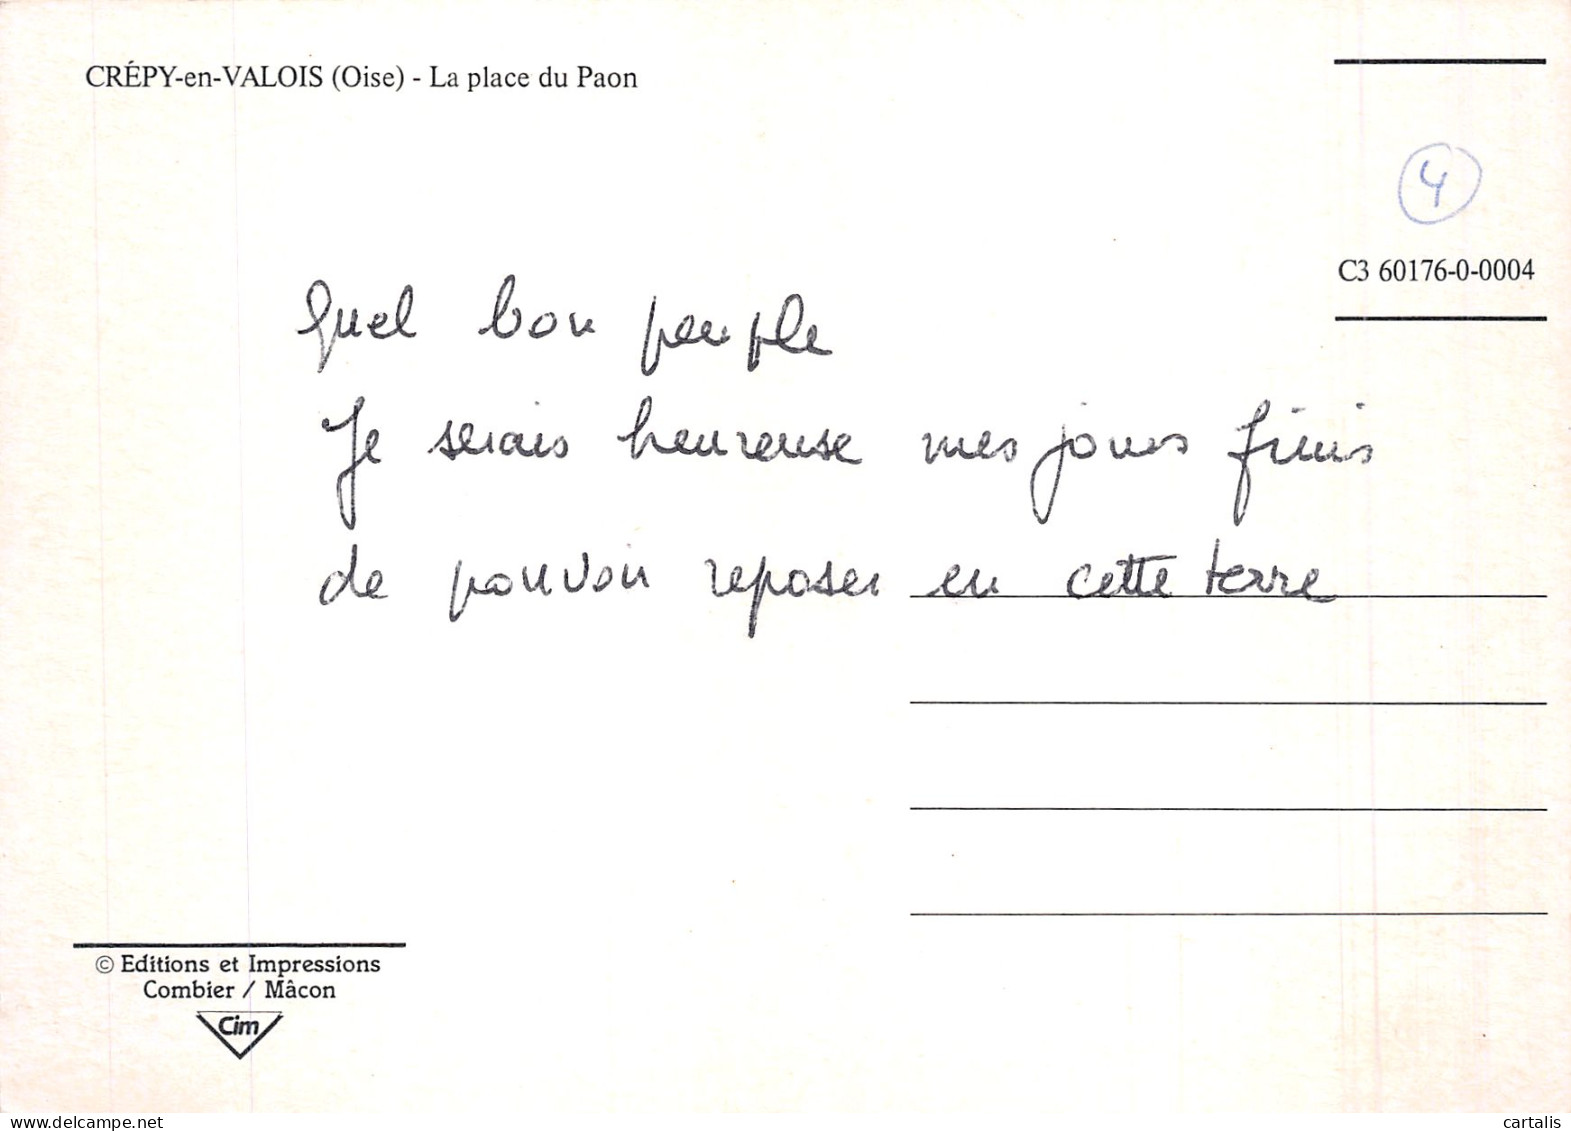 CRÉPY-en-VALOIS (Oise) - La place du Paon
4
C3 60176-0-0004
Quel bon peuple
Je serais heureuse mes jours finis
de pouvoir reposer en cette terre
© Editions et Impressions
Combier / Mâcon
Cim
delcampe.net
cartalis